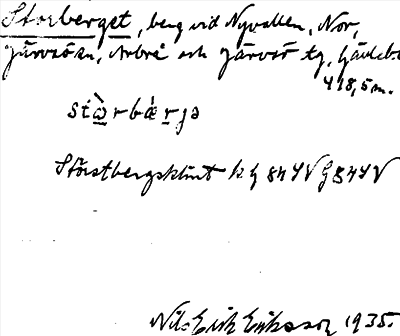 Storberget, berg vid Nyvallen, Nor,
Järvsö sn, Arbrå och Järvsö tg, Gävleb.
418,5 m.
stɷ̀rbǽrjə
Störstbergsklint
Nils Erik Eriksson 1935.